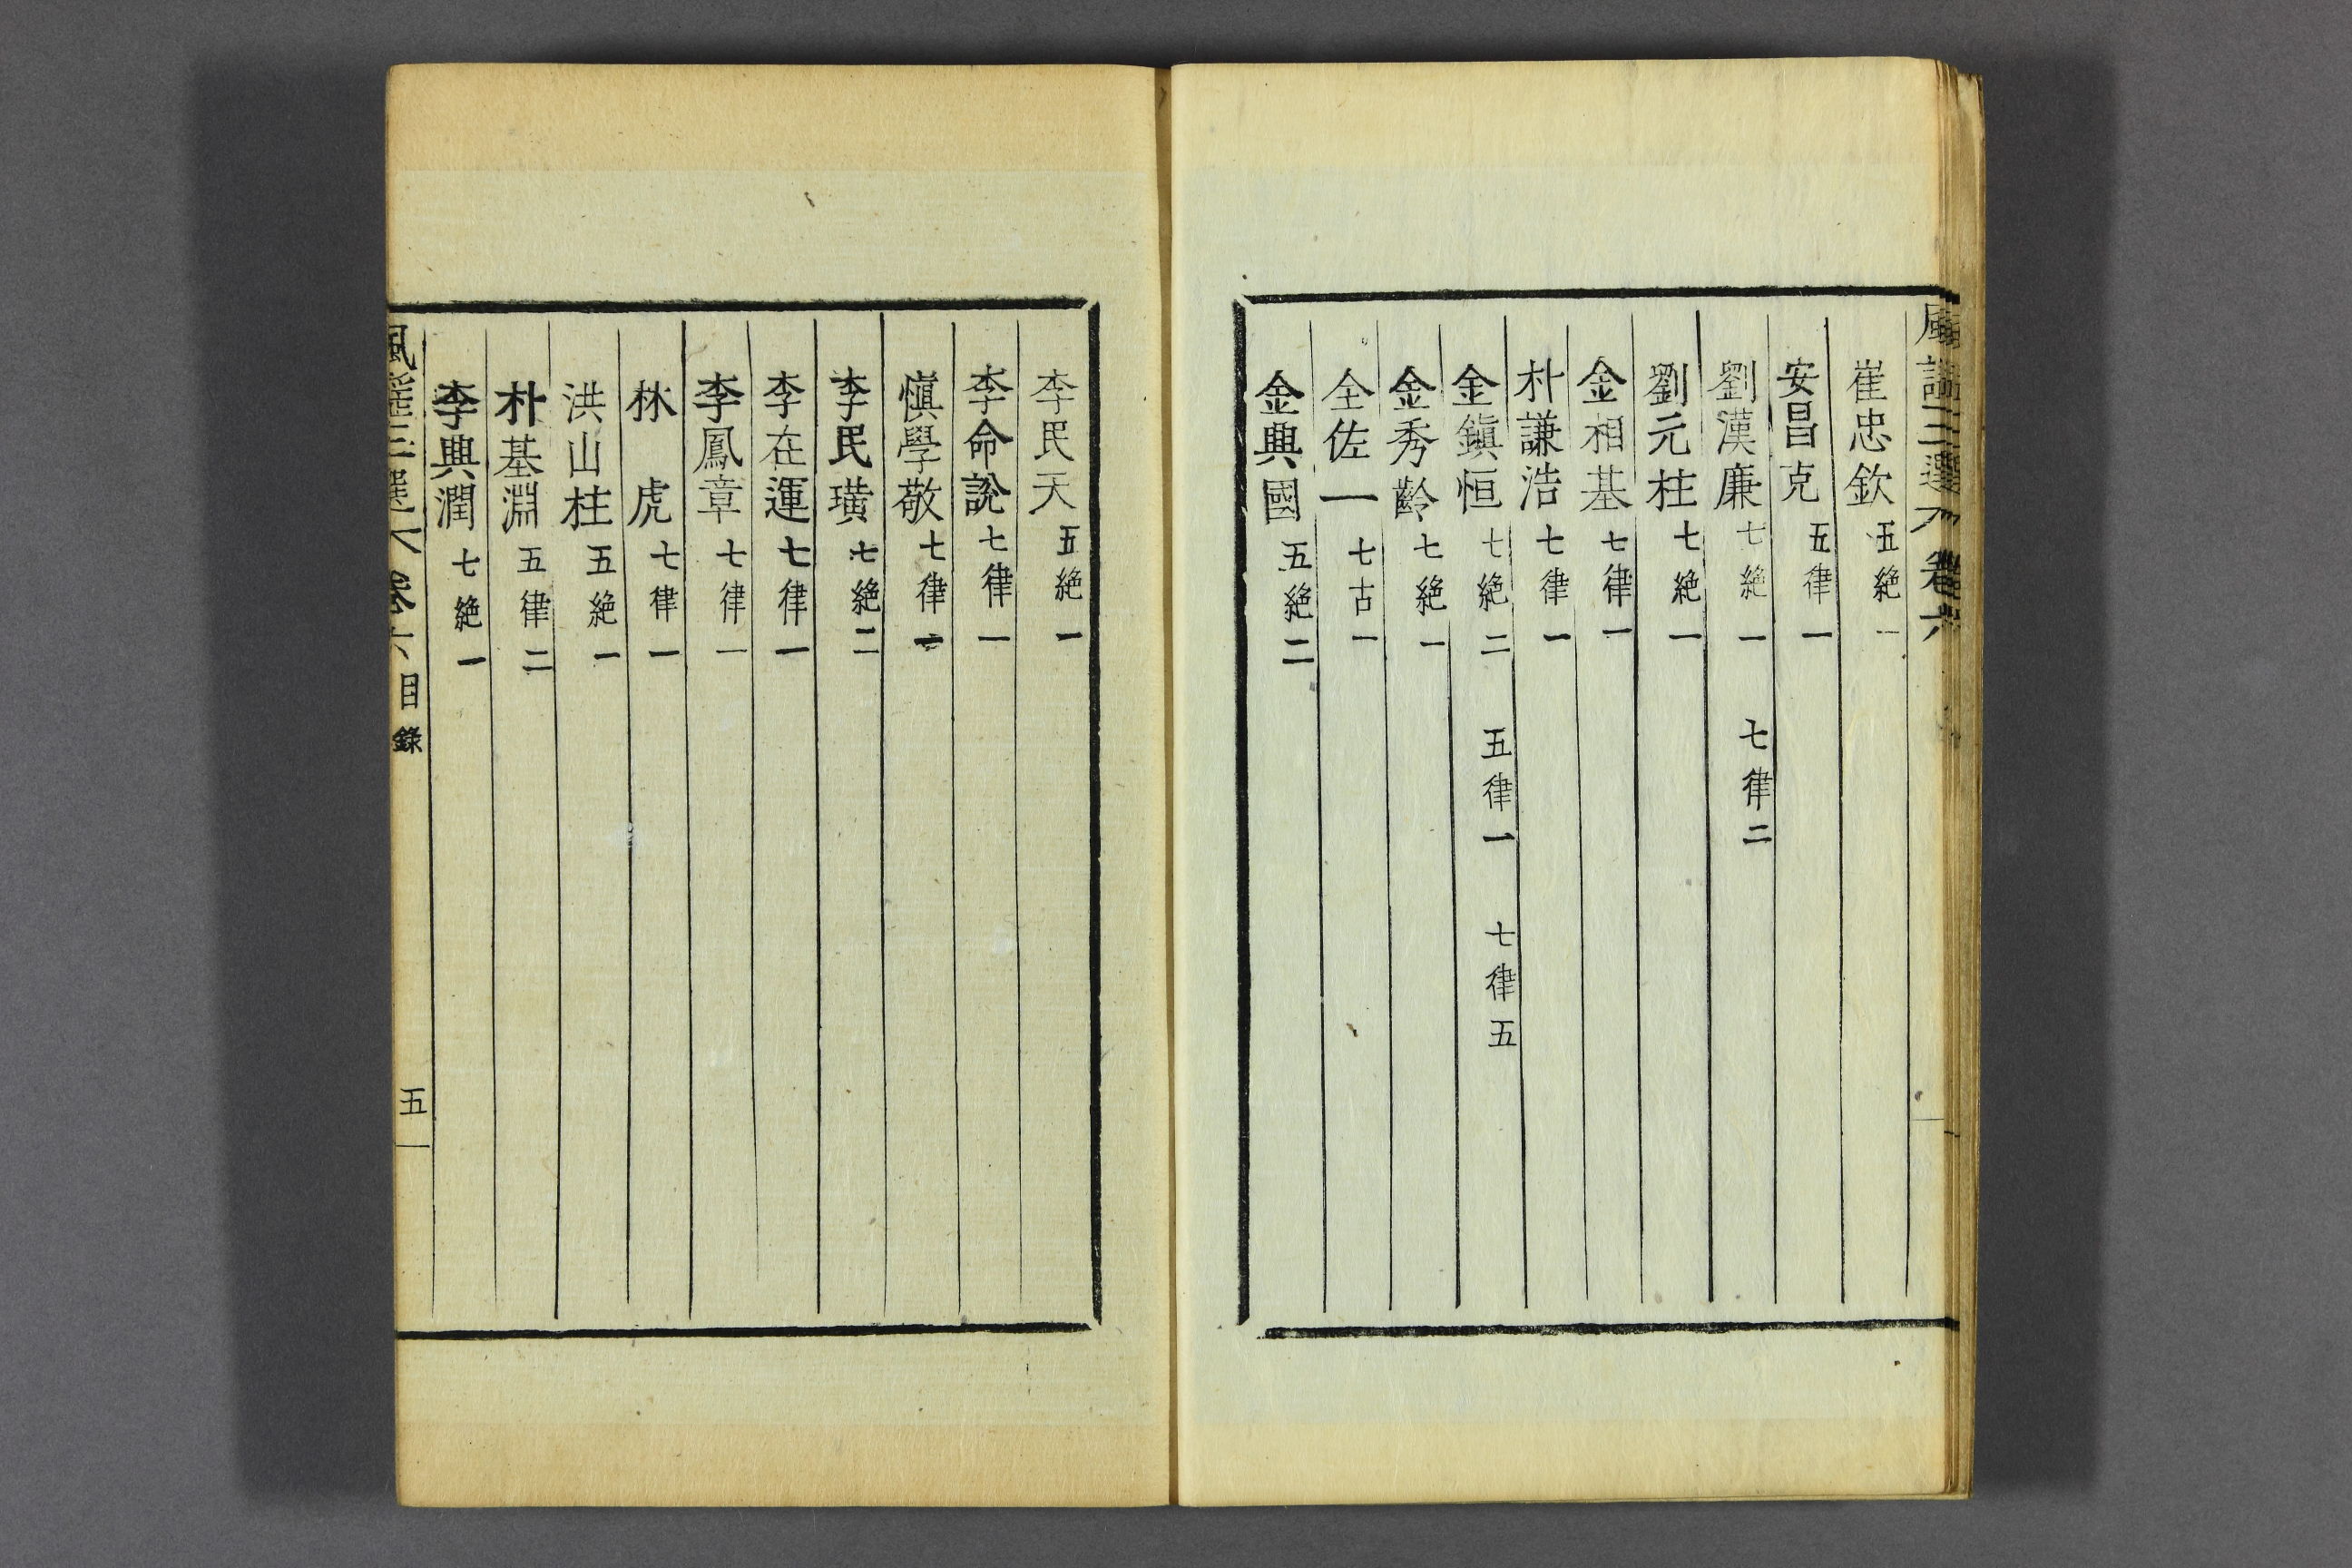 風謠三選 卷六
崔忠欽 五絶一
安昌克 五律一
劉漢廉 七絶一 七律二
劉元柱 七絶一
金相基 七律一
朴謙浩 七律一
金鎭恒 七絶二 五律一 七律五
金秀齡 七絶一
全佐一 七古一
金典國 五絶二
李民天 五絶一
李命說 七律一
愼學敬 七律一
李民璜 七絶二
李在運 七律一
李鳳章 七律一
林虎 七律一
洪山柱 五絶一
朴基淵 五律二
李典潤 七絶一
風謠三選 卷六 目錄 五